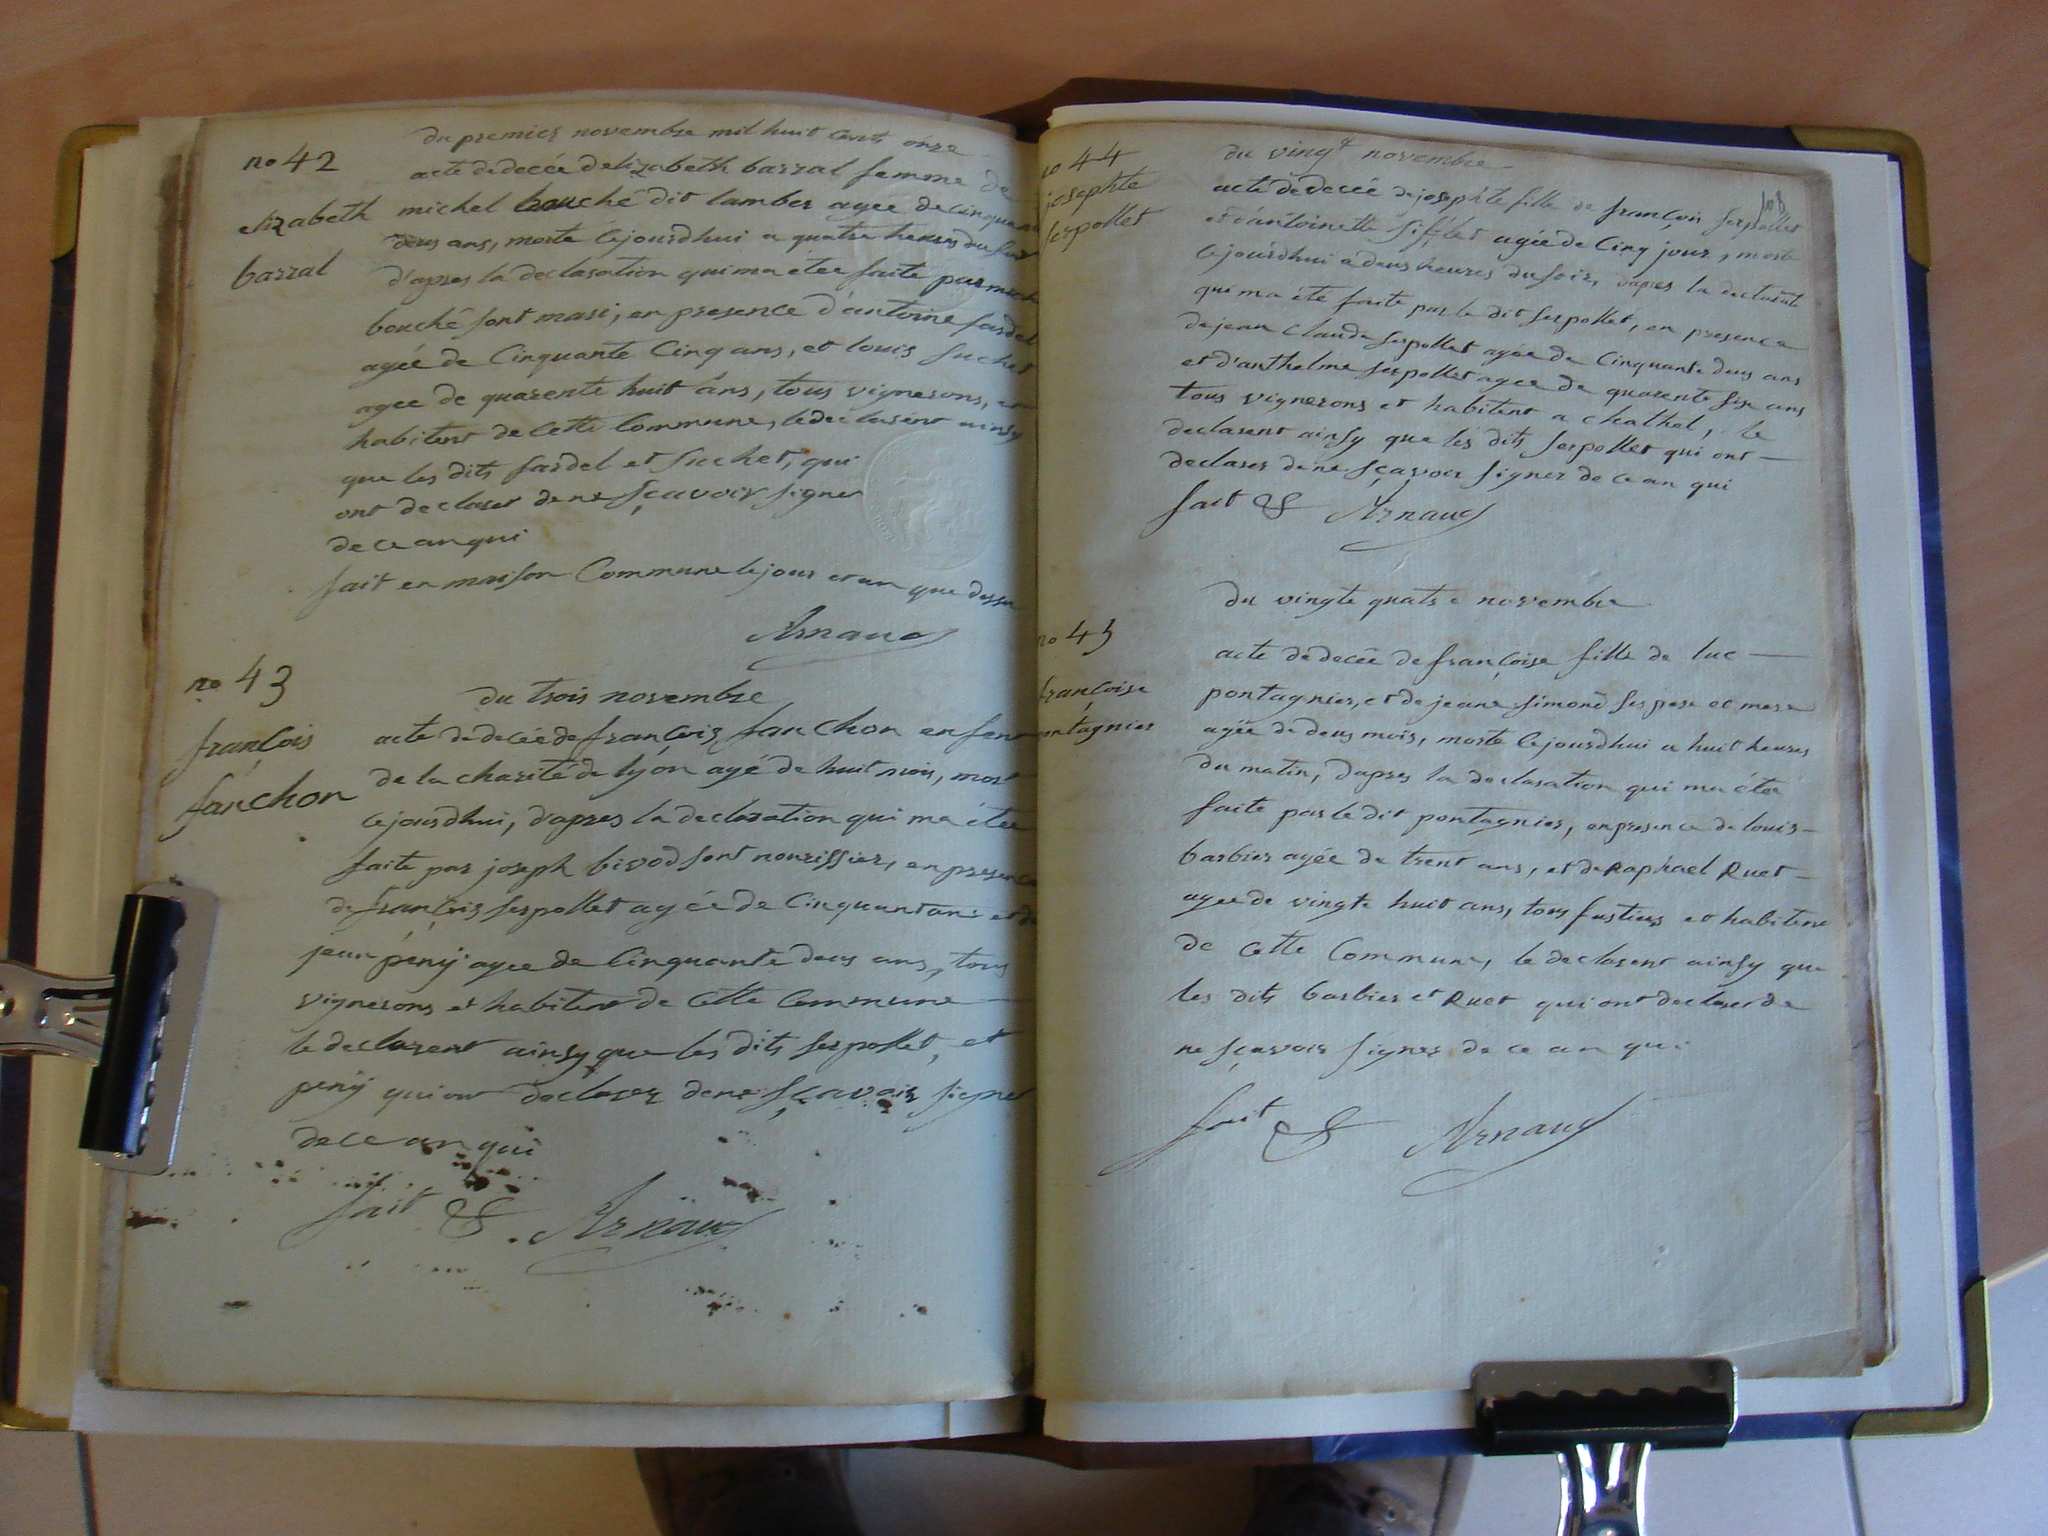 du premier novembre mil huit cents onze
no 42
acte de decée delizabeth barral femme de
elizabeth
michel bouché dit lamber agee de cinquante
deus ans, morte cejourdhui a quatre heures du soir
barral
d'apres la declaration qui ma etee faite par michel
bouché sont mari, en presence d'antoine sardel
agée de Cinquante Cinq ans, et louis suchet
agee de quarente huit ans, tous vignerons, et
habitent de Cette Commune, le declarent ainsy
que les dits sardel et suchet, qui
ont declarer de ne sçavoir signer
de ce an qui
fait en maison Commune le jour et an que dessu
Arnaud
no 43
du trois novembre
françois
fanchon
acte de decée de françois fanchon enfent
de la charité de lyon agé de huit mois, mort
cejourdhui, d'apres la declaration qui ma étée
faite par joseph bivod sont nourissier, en presence
de françois serpollet agée de Cinquant ans et de
jean pény agee de Cinquante deus ans, tous
vignerons et habitent de Cette Commune
le declarent ainsy que les dits serpollet, et
peny qui ont declarer de ne sçavoir signer
de ce an qui
fait & Arnaud
108
no 44
josephte
serpollet
du vingt novembre
acte de decée de josephte fille de françois serpollet
et d'antoinette Sifflet agée de Cinq jour, morte
cejourdhui a deus heures du soir, dapres la declaration
qui ma été faite par le dit serpollet, en presence
de jean Claude serpollet agée de Cinquante deus ans
et d'anthelme serpollet agee de quarente six ans
tous vignerons et habitent a chathel, le
declarent ainsy que les dits serpollet qui ont
declarer de ne sçavoir signer de ce an qui
fait & Arnaud
du vingte quatre novembre
no 45
françoise
pontagnier
acte de decée de françoise fille de luc
pontagnier, et de jeane simond ses pere et mere
agée de deus mois, morte cejourdhui a huit heures
du matin, dapres la declaration qui ma étée
faite par le dit pontagnier, en presence de louis
barbier agée de trent ans, et de Raphael Ruet
agee de vingte huit ans, tous fustiers et habitent
de Cette Commune, le declarent ainsy que
les dits barbier et Ruet qui ont declarer de
ne sçavoir signer de ce an qui
fait & Arnaud